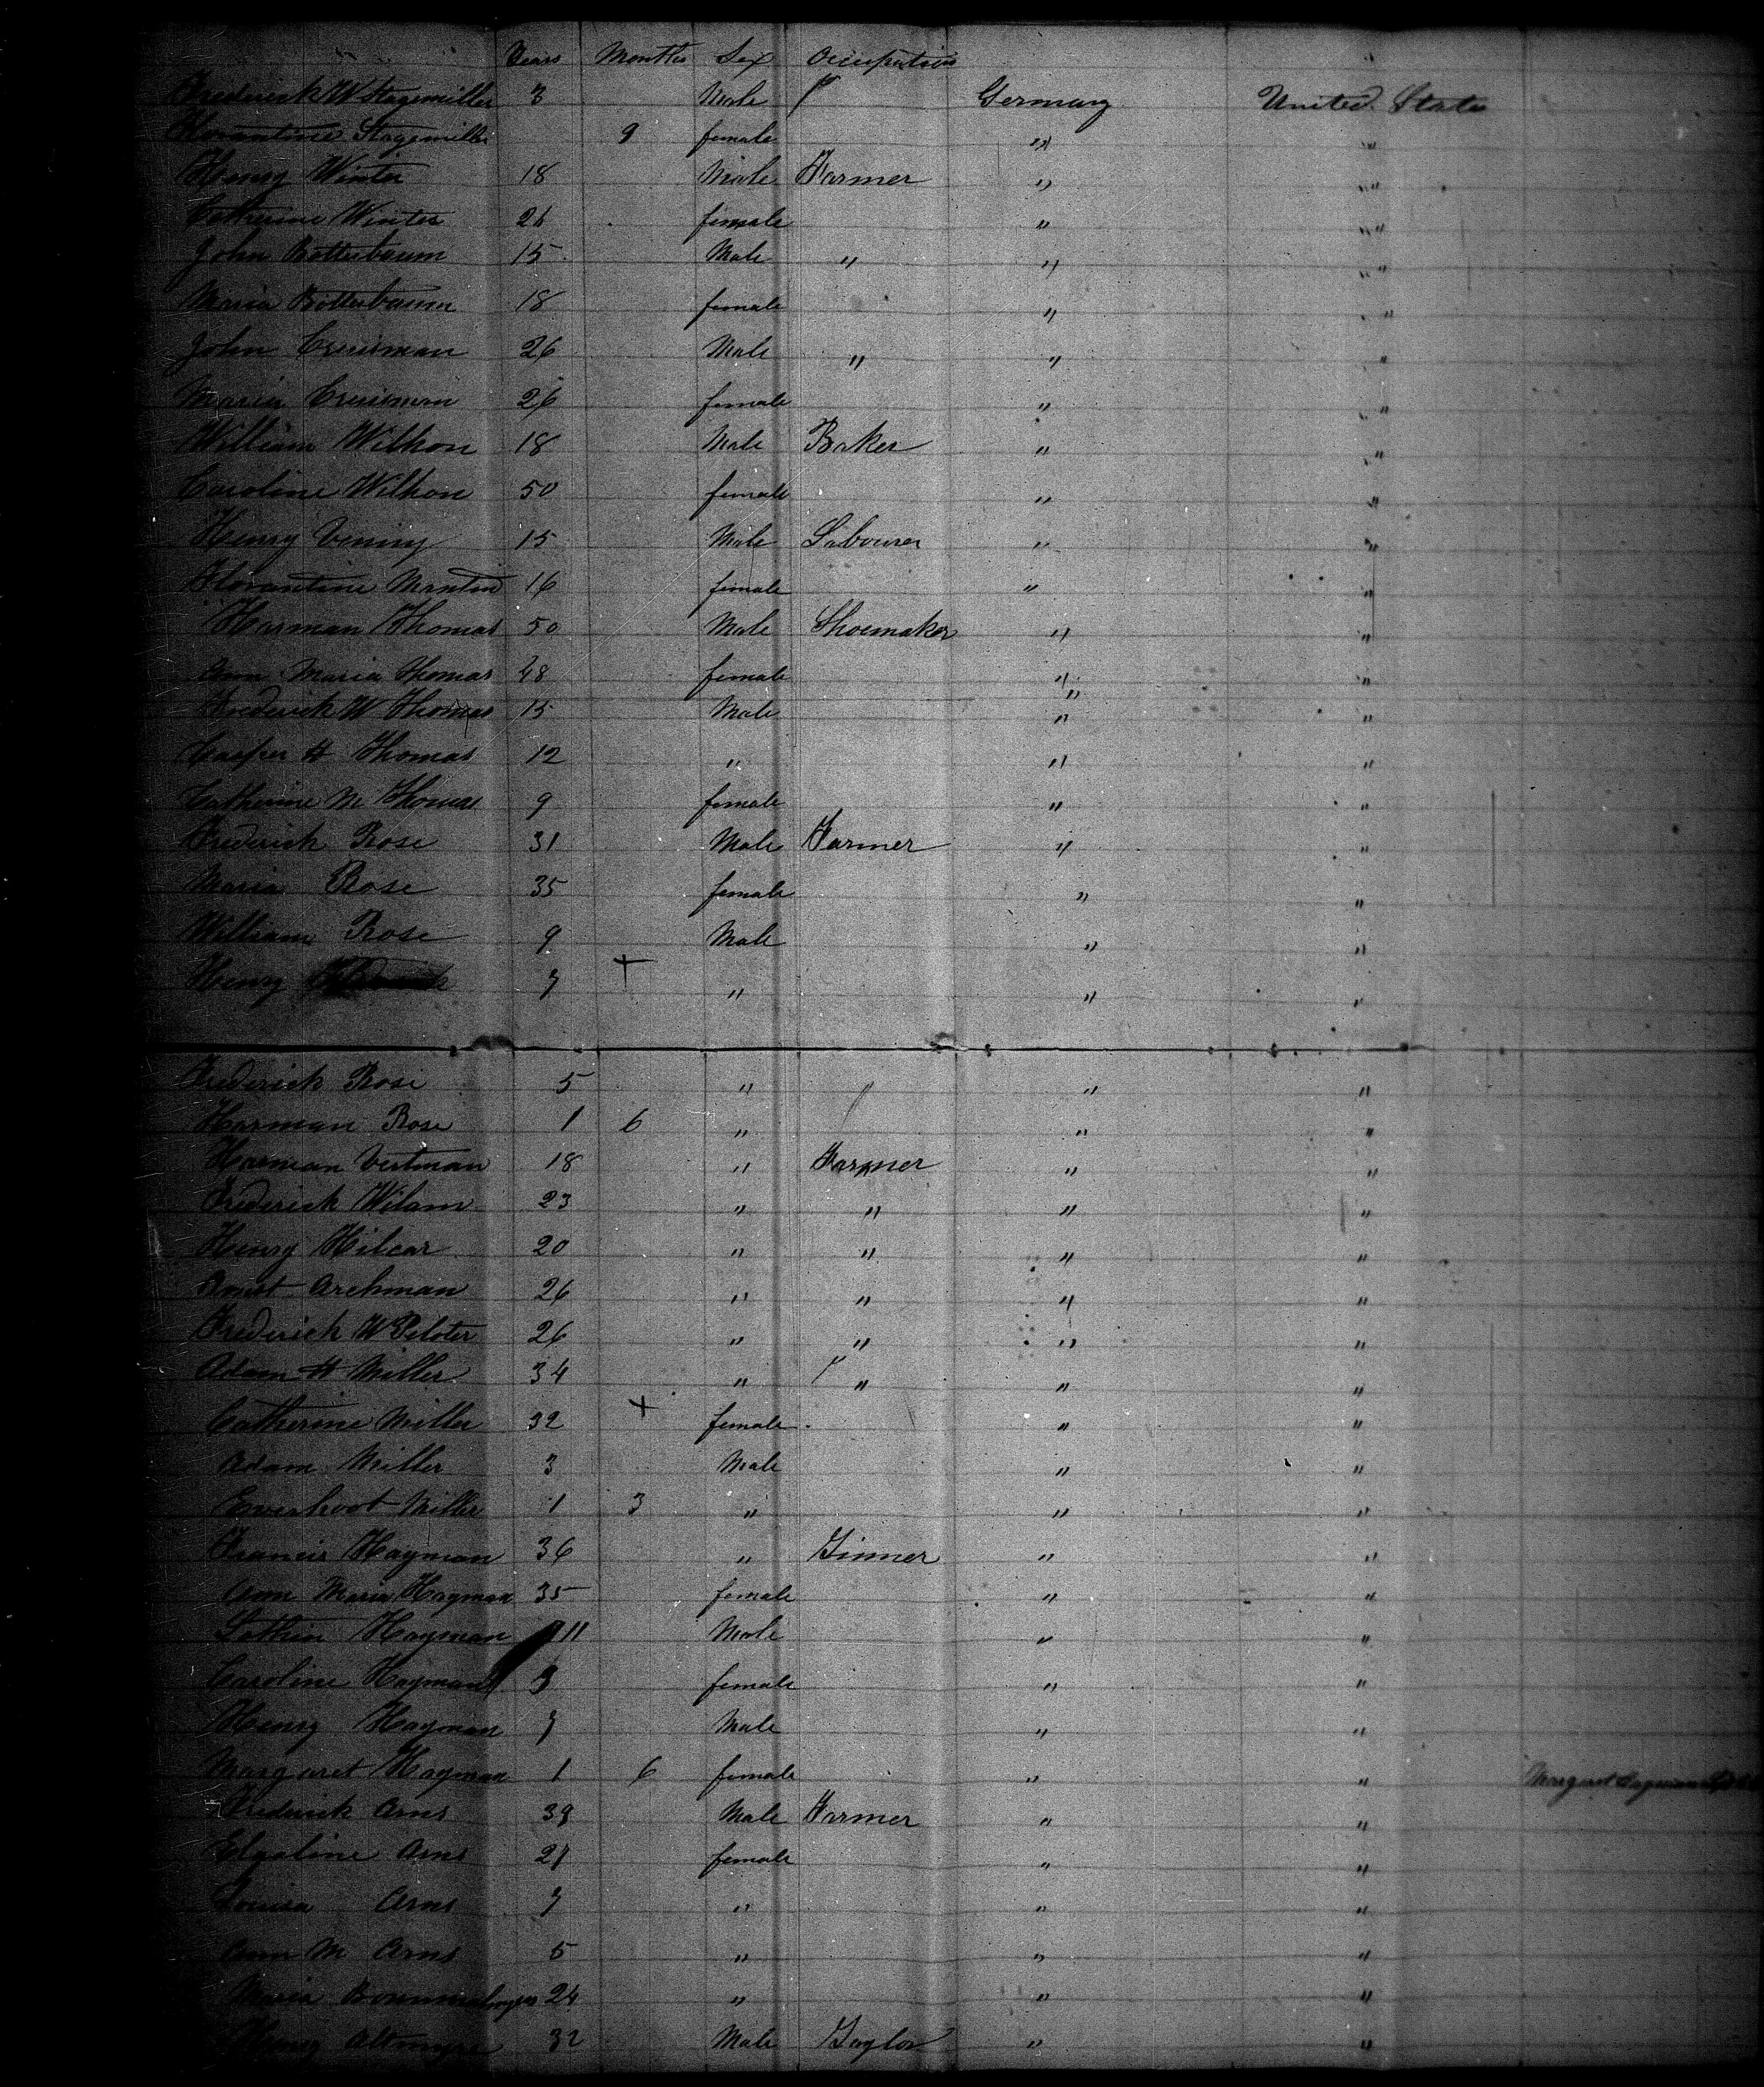 Years Months Sex Occupation
Frederick W Stagemiller 3 Male Germany United States
Florantine Stagemiller 9 female " "
Henry Winter 18 Male Farmer " "
Catherine Winter 26 female " "
John Botterbaum 15 Male " " "
Maria Botterbaum 18 female " "
John 26 Male " " "
Maria 26 female " "
William Wilkon 18 Male Baker " "
Caroline Wilkon 50 female " "
Henry 15 Male Labourer " "
Florantine 16 female " "
Harman Thomas 50 Male Shoemaker " "
Ann Maria Thomas 48 female " "
Frederick W Thomas 15 Male " "
Casper H Thomas 12 " " "
Catherine M Thomas 9 female " "
Frederick Rose 31 Male Farmer " "
Maria Rose 35 female " "
William Rose 9 Male " "
Henry 7 + " " "
Frederick Rose 5 " " "
Harman Rose 1 6 " " "
Harman Vertman 18 " Farmer " "
Frederick Wilam 23 " " " "
Henry Hilcar 20 " " " "
Ernst Archman 26 " " " "
Frederick W Peloter 26 " " " "
Adam H Miller 34 " " " "
Catherine Miller 32 + female " "
Adam Miller 3 Male " "
Everhoot Miller 1 3 " " "
Francis Hayman 36 " Ginner " "
Ann Maria Hayman 35 female " "
Hayman 11 Male " "
Caroline Hayman 9 female " "
Henry Hayman 7 Male " "
Margaret Hayman 1 6 female " " Margaret Hayman
Frederick Arns 39 Male Farmer " "
Elgaline Arns 27 female " "
Louisa Arns 7 " " "
Ann M Arns 5 " " "
Maria 24 " " "
Henry Altmyre 32 Male Taylor " "